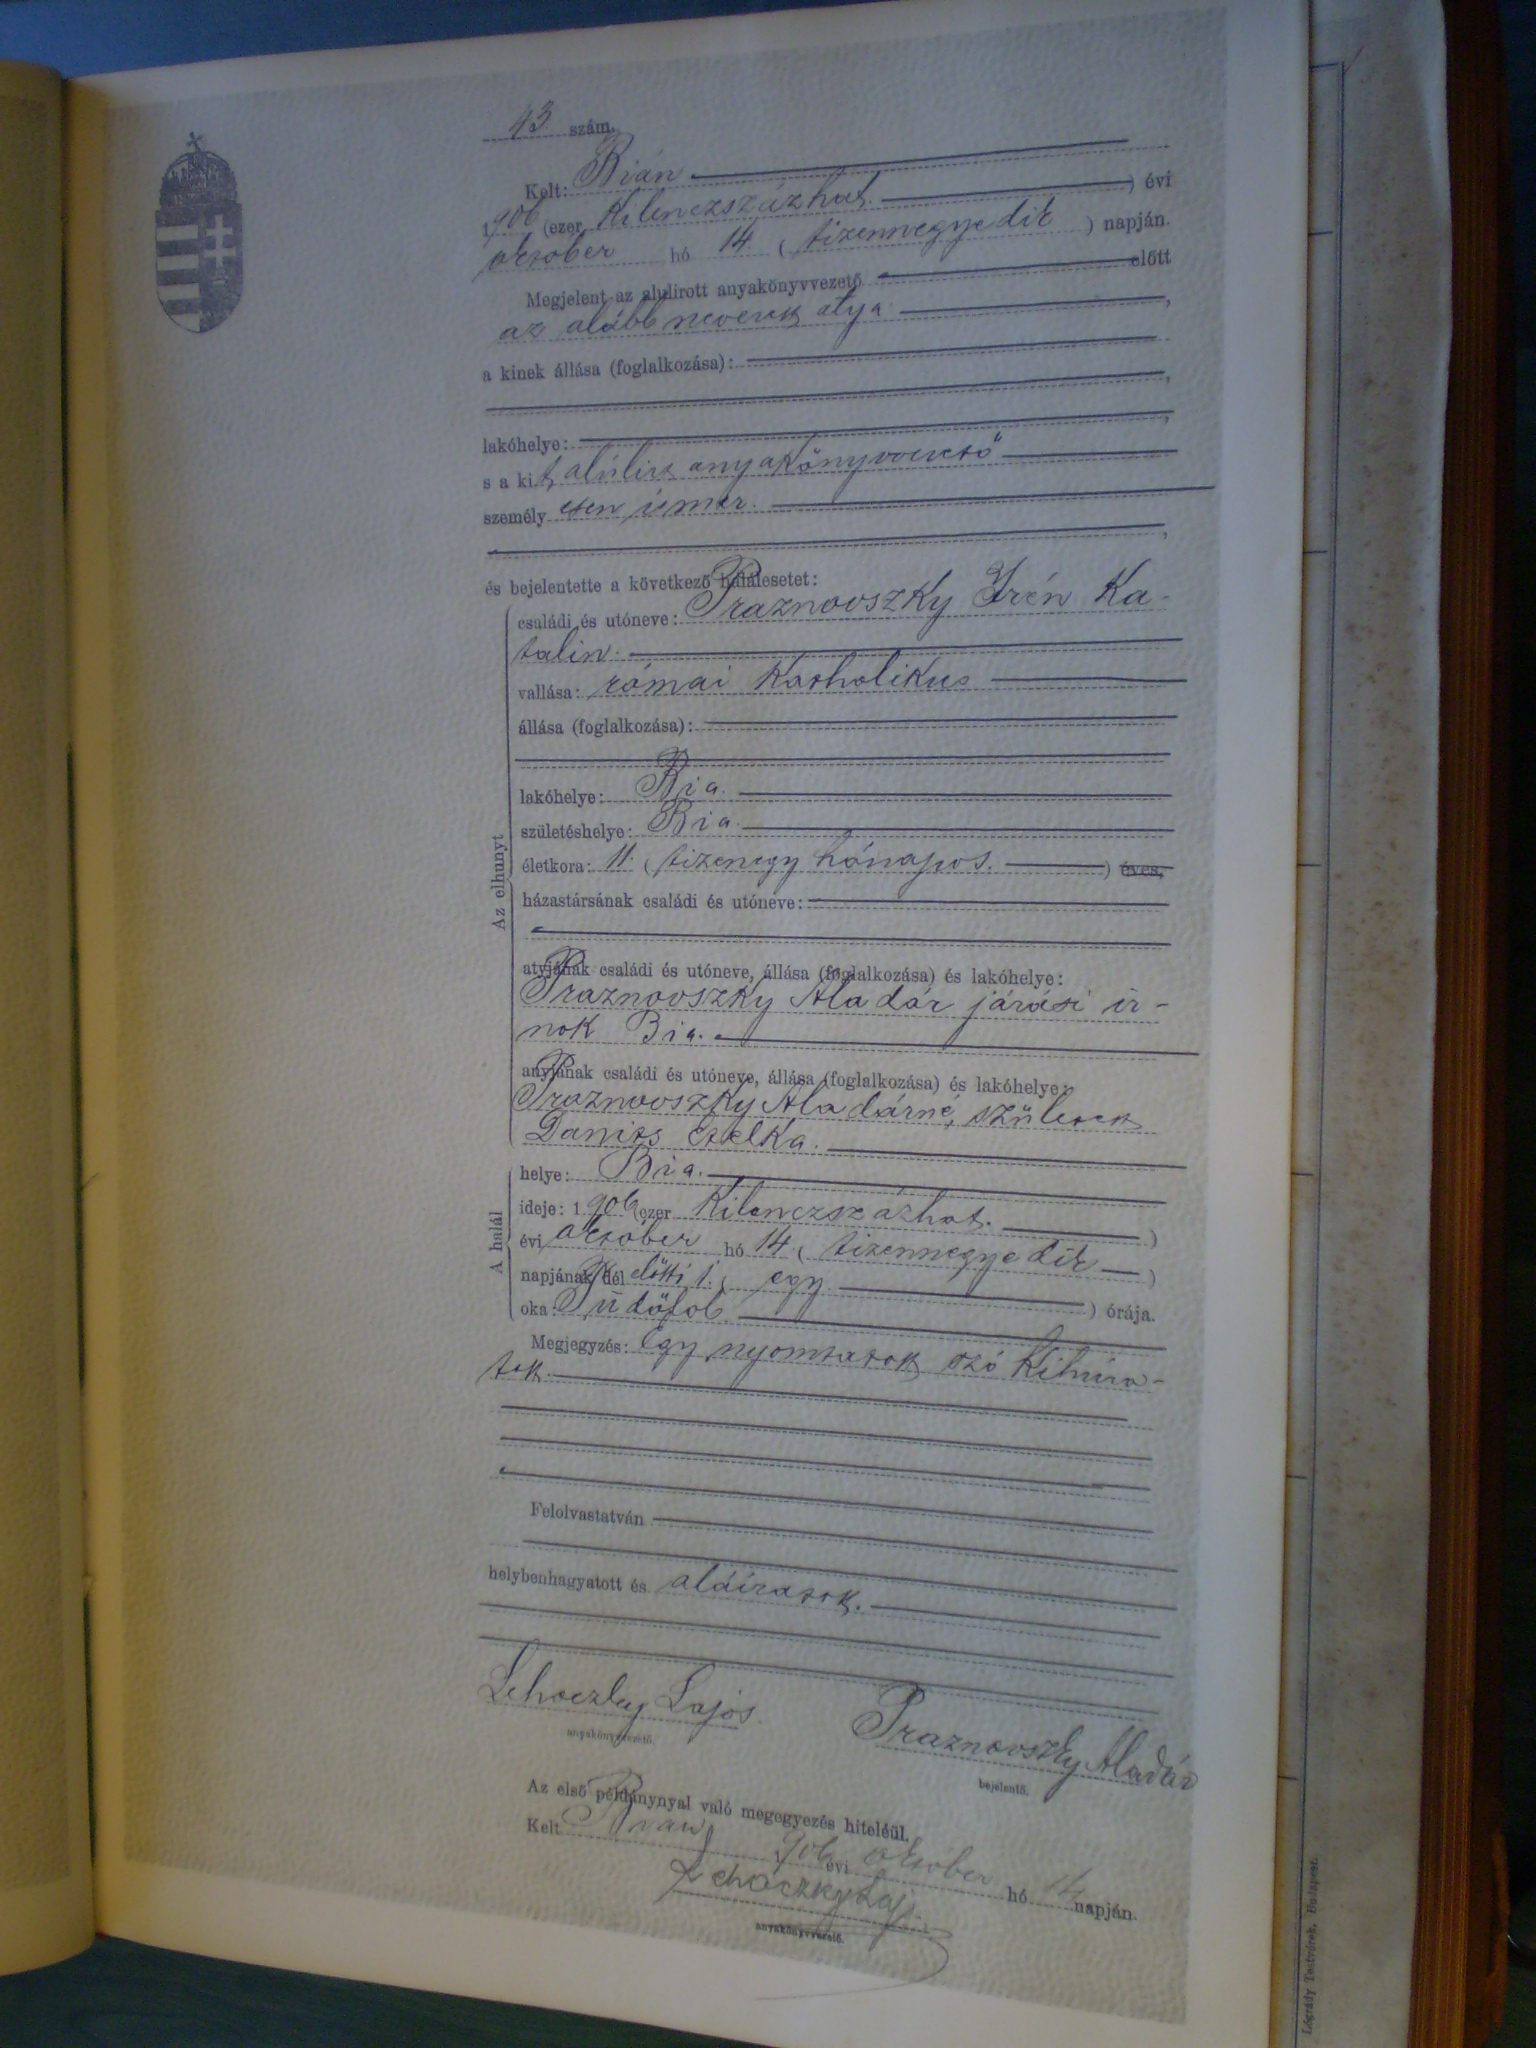 43 szám.
Kelt: Bián
1906 (ezer kilenczszázhat. ) évi
október hó 14 ( tizennegyedik ) napján.
Megjelent az alulirott anyakönyvvezető előtt
az alább nevezett atya ,
a kinek állása (foglalkozása):
,
lakóhelye: ,
s a kit alúlirt anyakönyvvezető
személyesen ismer.
,
és bejelentette a következő halálesetet:
Az elhunyt
családi és utóneve: Praznovszky Irén Ka-
talin.
vallása: római katholikus
állása (foglalkozása):
lakóhelye: Bia.
születéshelye: Bia.
életkora: 11. ( tizenegy hónapos. ) éves,
házastársának családi és utóneve:
atyjának családi és utóneve, állása (foglalkozása) és lakóhelye:
Praznovszky Aladár járási ir-
nok Bia.
anyjának családi és utóneve, állása (foglalkozása) és lakóhelye:
Praznovszky Aladárné, született
Etelka.
A halál
helye: Bia.
ideje: 1906 (ezer kilenczszázhat. )
évi október hó 14 ( tizennegyedik )
napjának dél előtti 1. ( egy ) órája.
oka: Tüdőlob.
Megjegyzés: Egy nyomtatott szó
Felolvastatván
helybenhagyatott és aláíratott.
Lehoczky Lajos
anyakönyvvezető.
Praznovszky Aladár
bejelentő.
Az első példánynyal való megegyezés hiteléül.
Kelt Bián, 1906 évi október hó 14 napján.
Lehoczky Laj.
anyakönyvvezető.
Légrády Testvérek, Budapest.